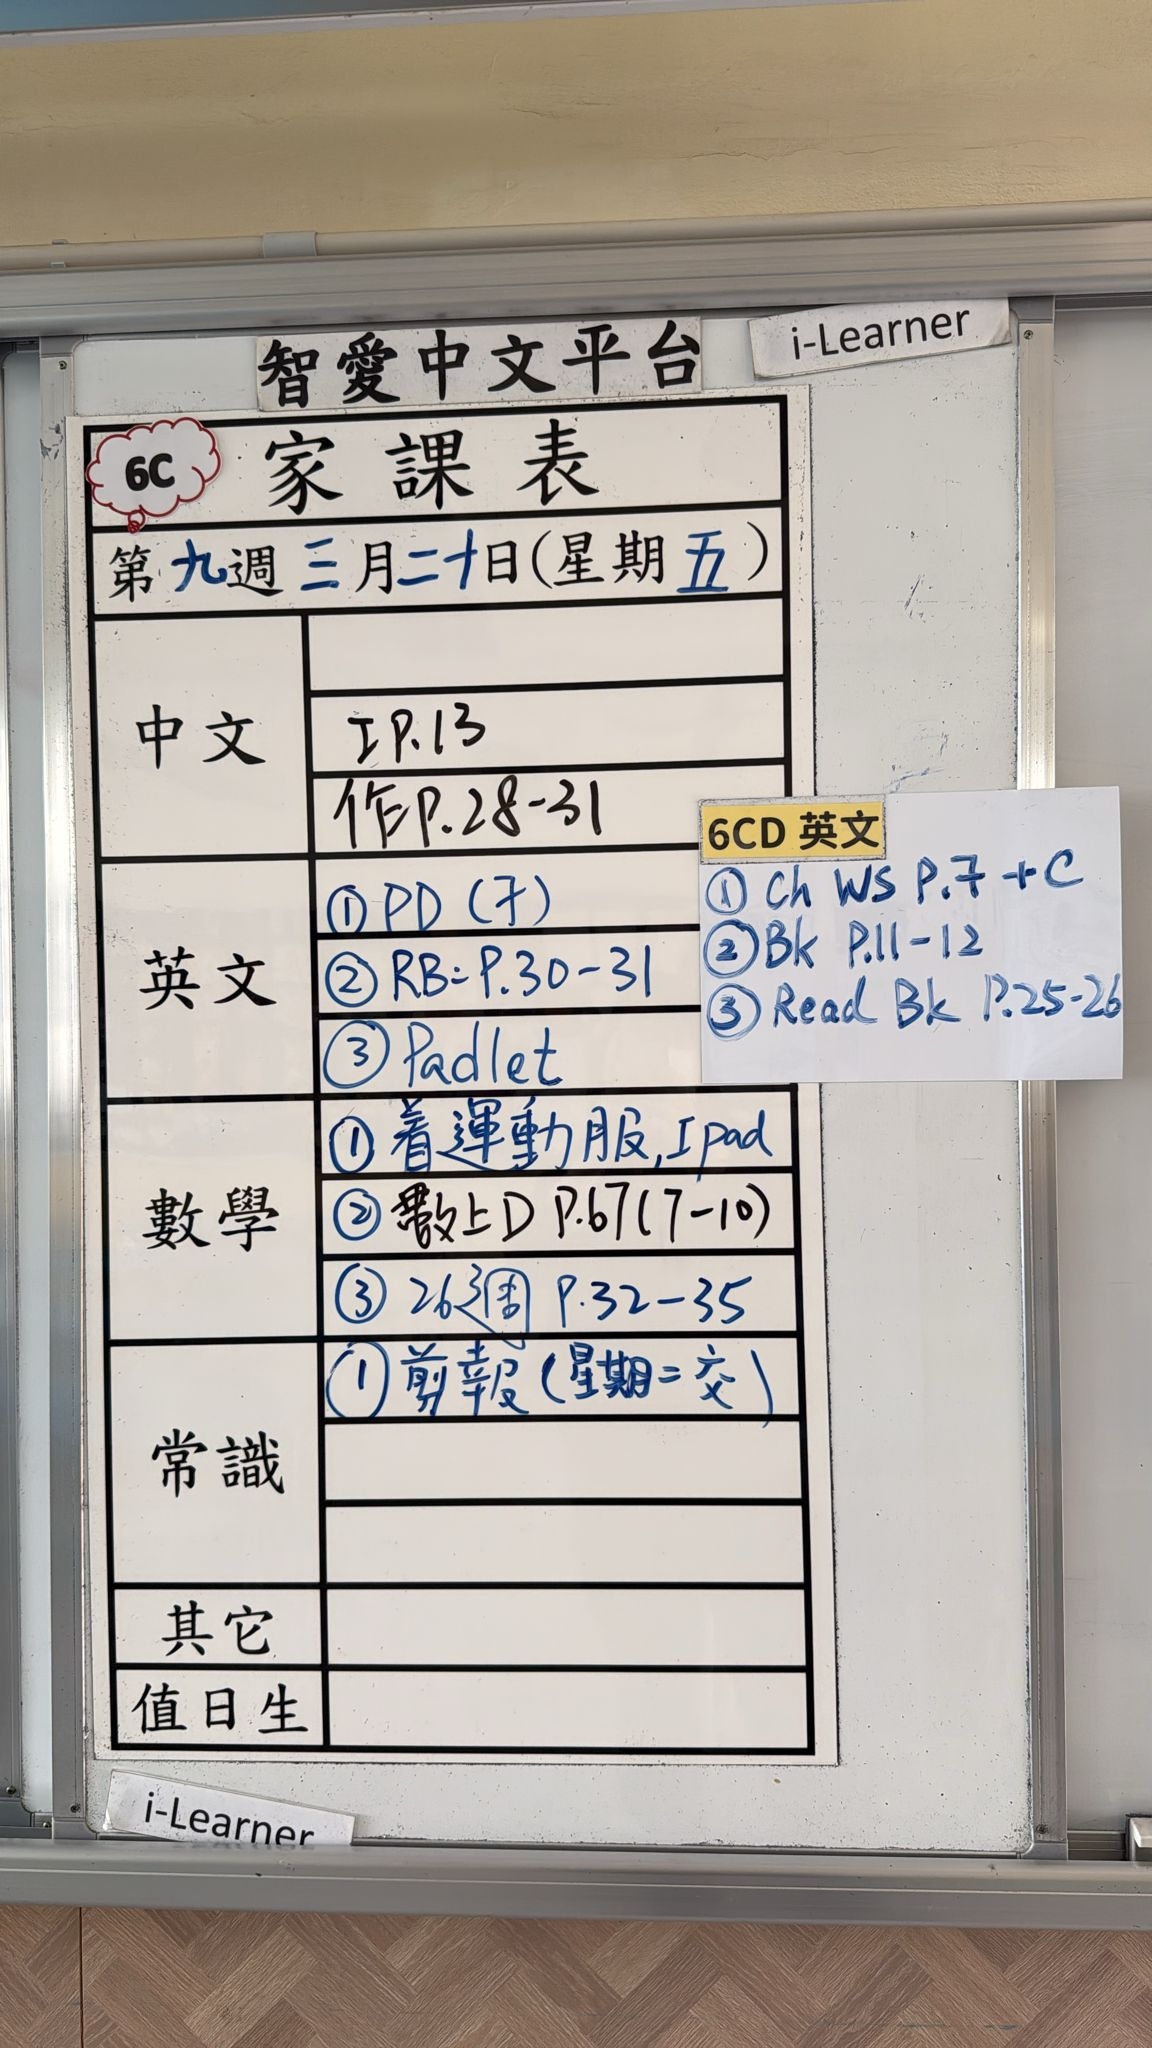 智愛中文平台
i-Learner
6C
家課表
第九週三月二十日(星期五)
中文
I P.13
作P.28-31
英文
① PD (7)
② RB: P.30-31
③ Padlet
6CD 英文
① Ch WS P.7 + C
② Bk P.11-12
③ Read Bk P.25-26
數學
① 着運動服, Ipad
② 數上D P.67(7-10)
③ 26週 P.32-35
常識
① 剪報(星期二交)
其它
值日生
i-Learner